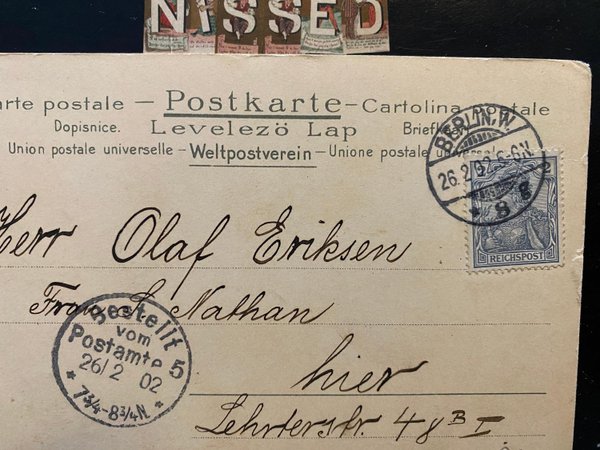 NISSED
arte postale – Postkarte – Cartolina postale
Dopisnice. Levelezö Lap
Union postale universelle – Weltpostverein – Unione
BERLIN, W.
26.2.02. 5-6N
* 8 g
2
REICHSPOST
Herr Olaf Eriksen
Nathan
hier
Lehrterstr. 48 B I
Bestellt
vom
Postamte 5
26/2 02
* 7¾-8¾N. *